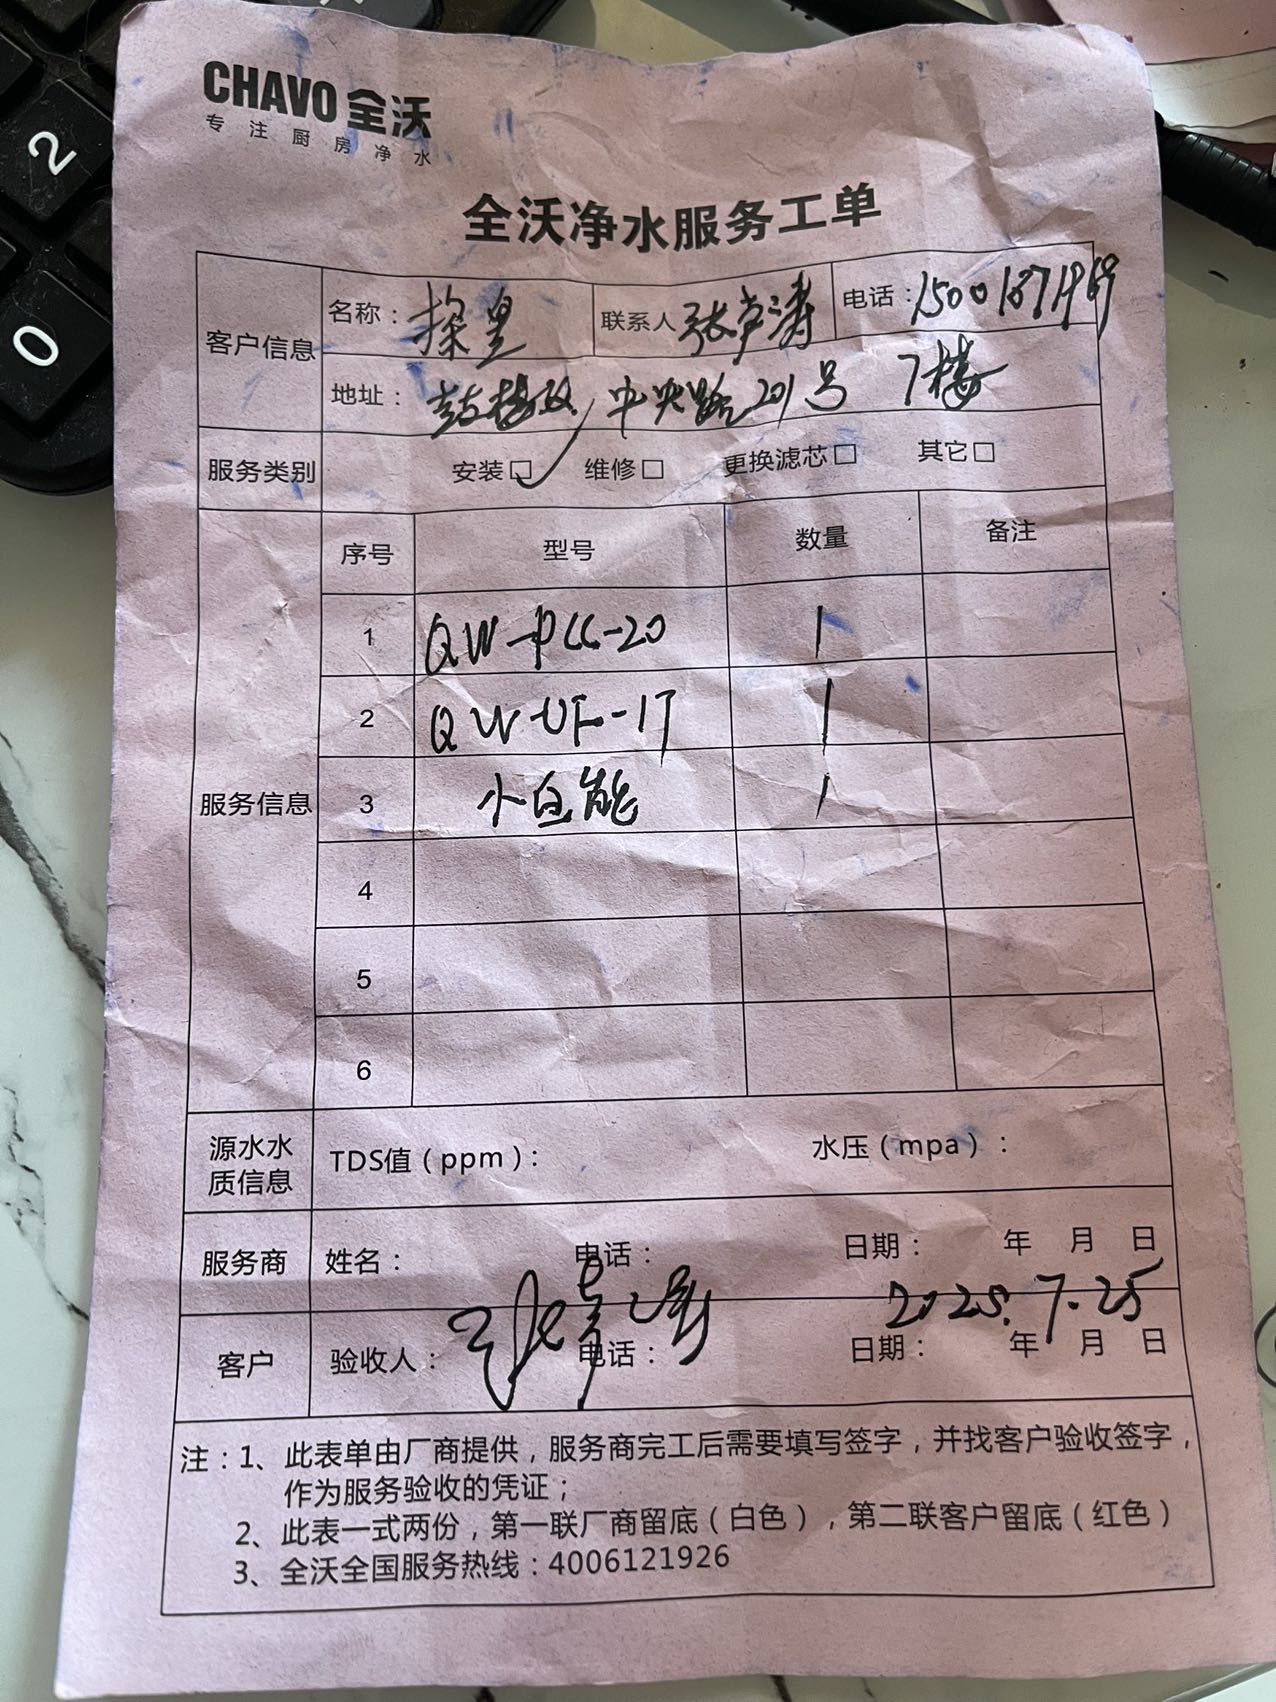 2
0
CHAVO 全沃
专注厨房净水
全沃净水服务工单
客户信息
名称： 探皇 联系人 张 涛 电话：
地址： 鼓楼区 中央路201号 7楼
服务类别 安装☑ 维修□ 更换滤芯□ 其它□
服务信息
序号 型号 数量 备注
1 QW-PCC-20 1
2 QW-UF-17 1
3 小白能 1
4
5
6
源水水质信息 TDS值（ppm）： 水压（mpa）：
服务商 姓名： 电话： 日期： 年 月 日
2025.7.25
客户 验收人： 电话： 日期： 年 月 日
注：1、此表单由厂商提供，服务商完工后需要填写签字，并找客户验收签字，
作为服务验收的凭证；
2、此表一式两份，第一联厂商留底（白色），第二联客户留底（红色）
3、全沃全国服务热线：4006121926